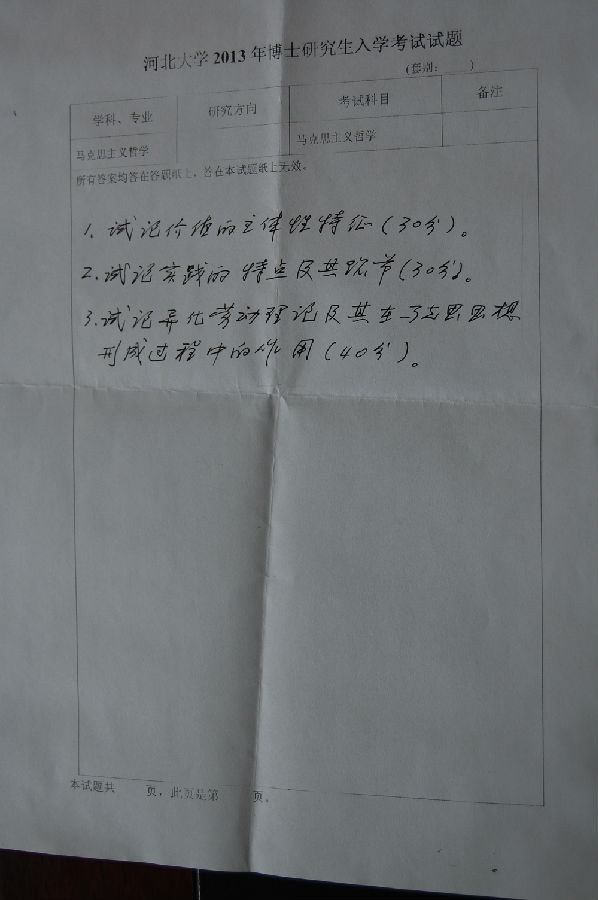 河北大学2013年博士研究生入学考试试题
（套别：　）
学科、专业 研究方向 考试科目 备注
马克思主义哲学 马克思主义哲学
所有答案均答在答题纸上，答在本试题纸上无效。
1. 试论价值的主体性特征（30分）。
2. 试论实践的特点及其环节（30分）。
3. 试论异化劳动理论及其在马克思思想
形成过程中的作用（40分）。
本试题共　页，此页是第　页。